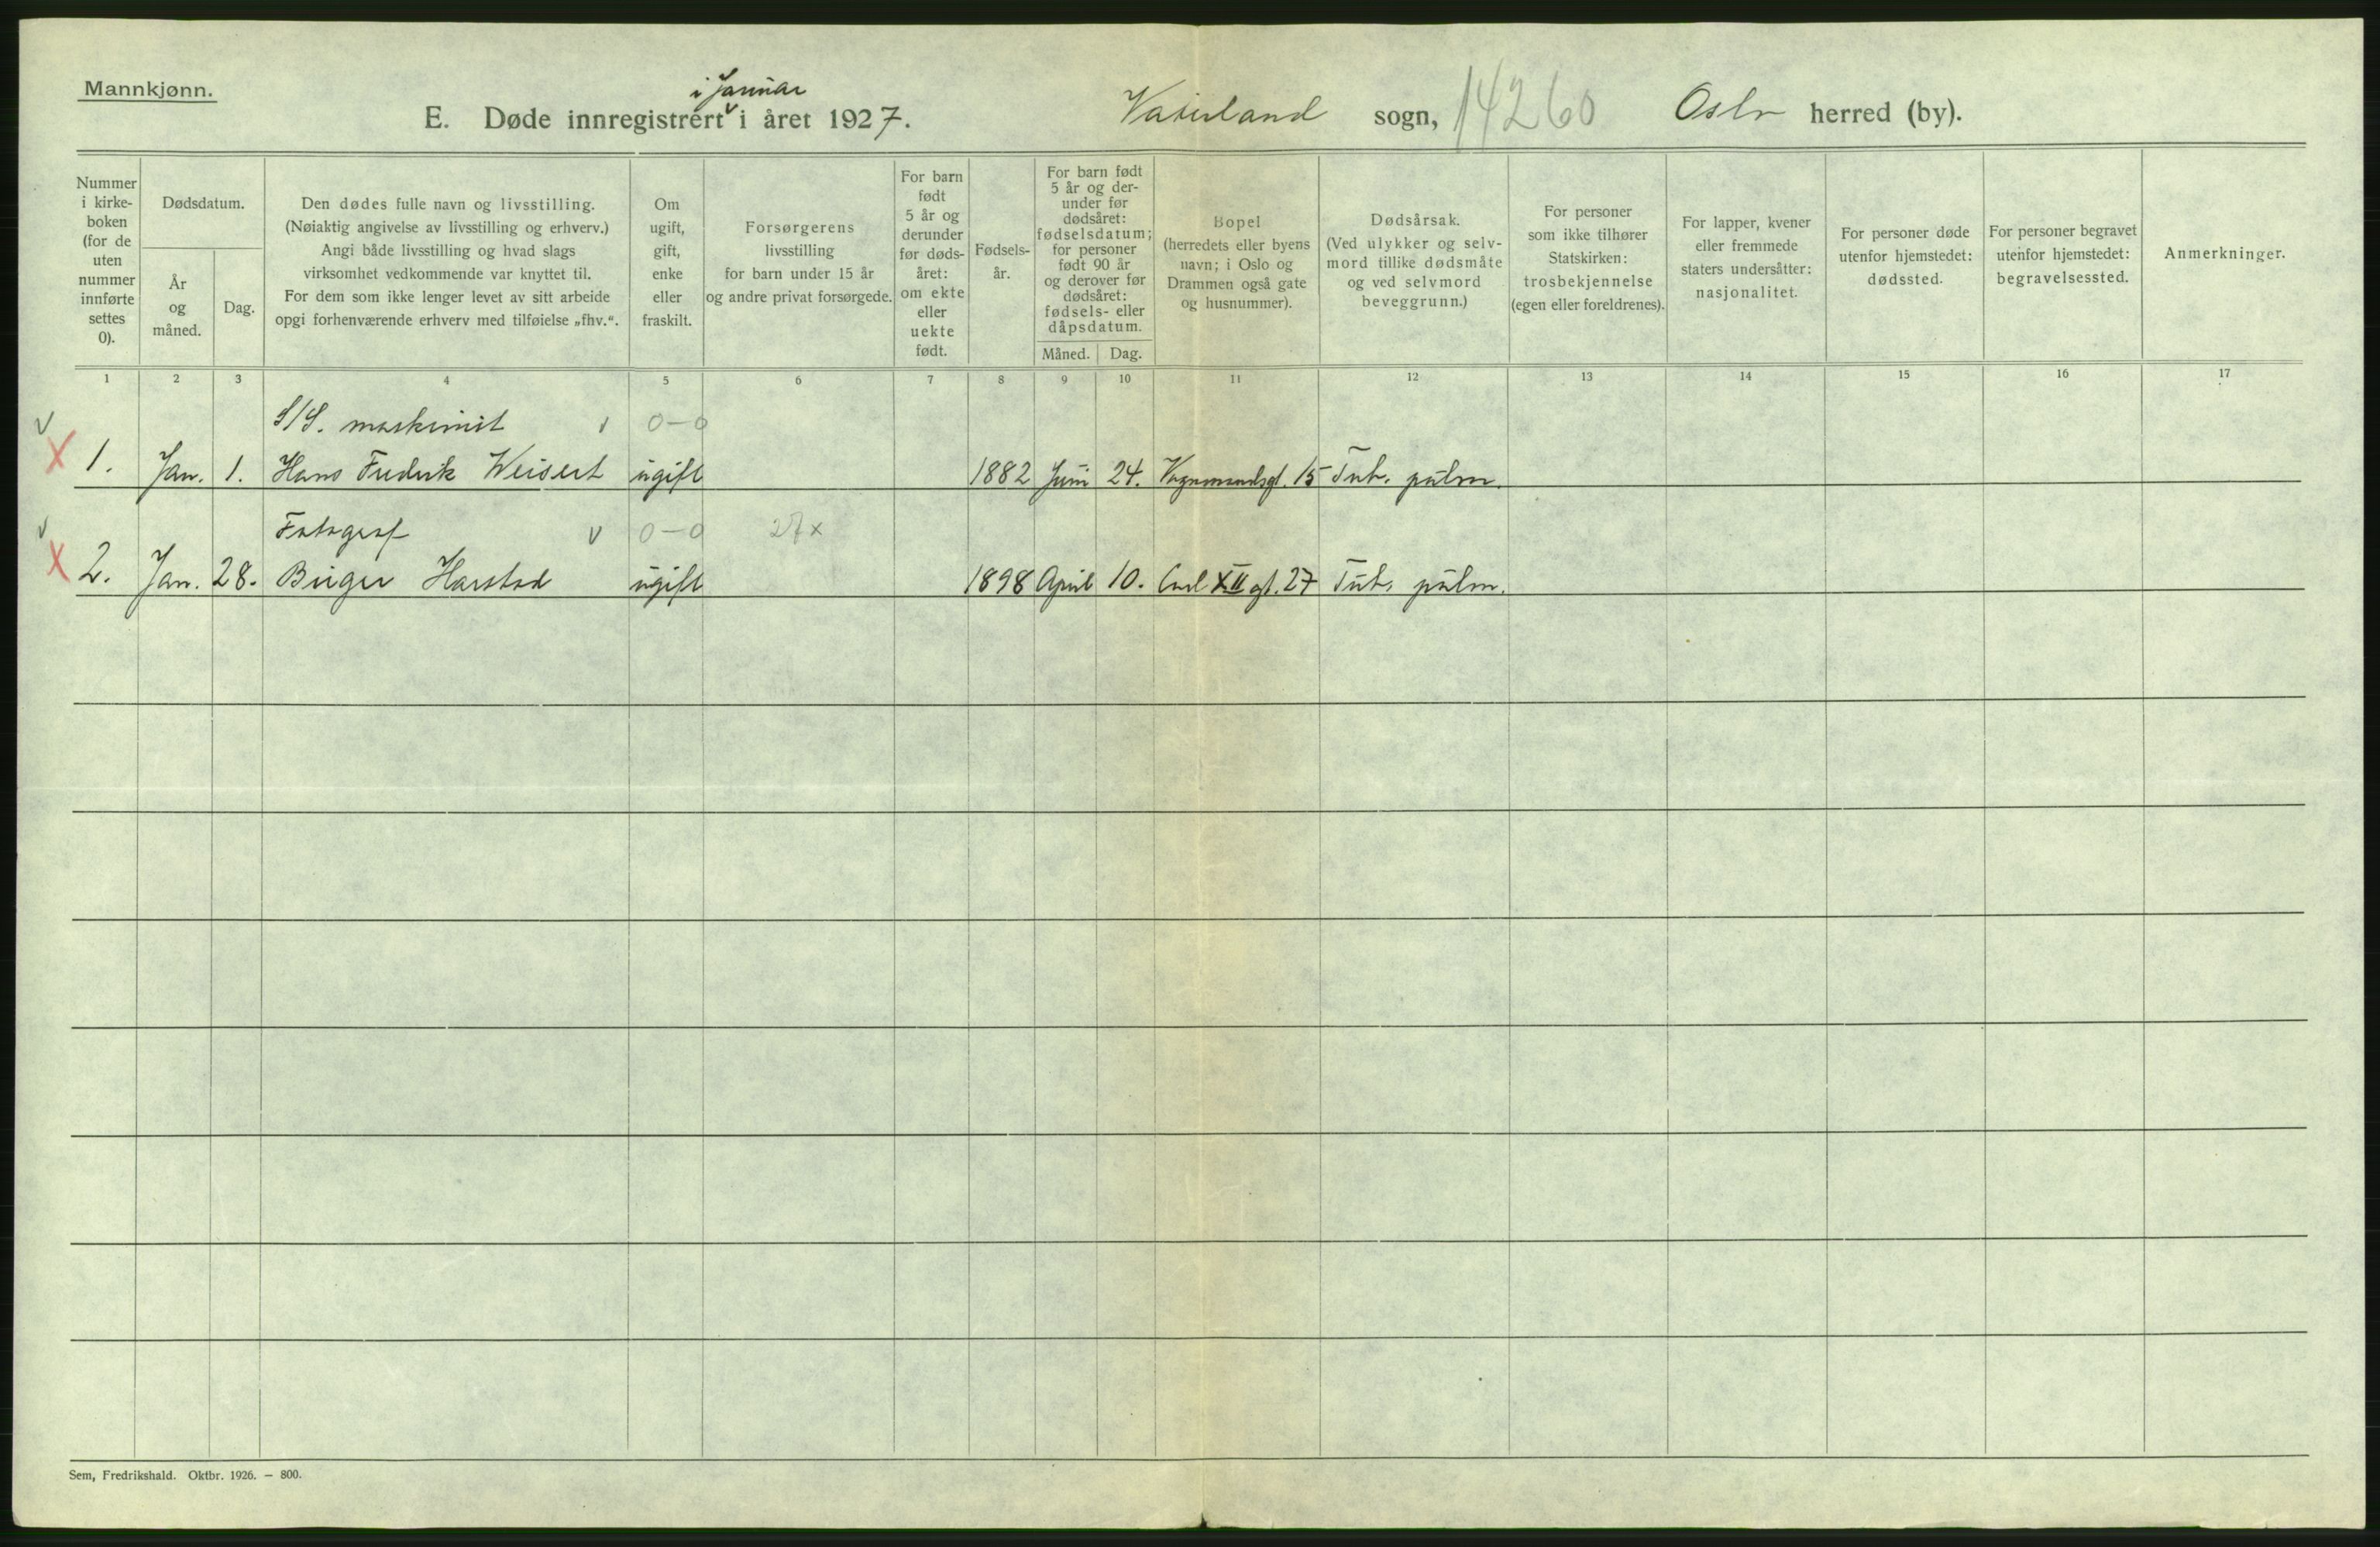 Mannkjønn.
i Januar
E. Døde innregistrert v i året 1927.
Vaterland sogn, 14260 Oslo herred (by).
Nummer i kirke- boken (for de uten nummer innførte settes 0).
Dødsdatum.
År og måned.
Dag.
Den dødes fulle navn og livsstilling.
(Nøiaktig angivelse av livsstilling og erhverv.)
Angi både livsstilling og hvad slags
virksomhet vedkommende var knyttet til.
For dem som ikke lenger levet av sitt arbeide
opgi forhenværende erhverv med tilføielse „fhv.“.
Om ugift, gift, enke eller fraskilt.
Forsørgerens
livsstilling
for barn under 15 år
og andre privat forsørgede.
For barn født 5 år og derunder før døds- året: om ekte eller uekte født.
Fødsels- år.
For barn født 5 år og der- under før dødsåret: fødselsdatum; for personer født 90 år og derover før dødsåret: fødsels- eller dåpsdatum.
Måned. Dag.
Bopel
(herredets eller byens
navn; i Oslo og
Drammen også gate
og husnummer).
Dødsårsak.
(Ved ulykker og selv-
mord tillike dødsmåte
og ved selvmord
beveggrunn.)
For personer
som ikke tilhører
Statskirken:
trosbekjennelse
(egen eller foreldrenes).
For lapper, kvener
eller fremmede
staters undersåtter:
nasjonalitet.
For personer døde
utenfor hjemstedet:
dødssted.
For personer begravet
utenfor hjemstedet:
begravelsessted.
Anmerkninger.
1 2 3 4 5 6 7 8 9 10 11 12 13 14 15 16 17
v S/S. maskinist v 0-0
X 1. Jan. 1. Hans Fredrik Weisert ugift 1882 Juni 24. Vognmandsgt. 15 Tub. pulm.
v Fotograf v 0-0 27x
X 2. Jan. 28. Birger Harstad ugift 1898 April 10. Carl XII gt. 27 Tub. pulm.
Sem, Fredrikshald. Oktbr. 1926. — 800.